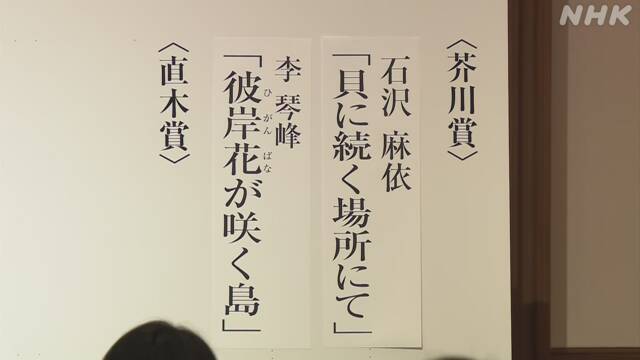 NHK
〈芥川賞〉
石沢 麻依
「貝に続く場所にて」
李 琴峰
「彼岸花が咲く島」
ひ がん ばな
〈直木賞〉